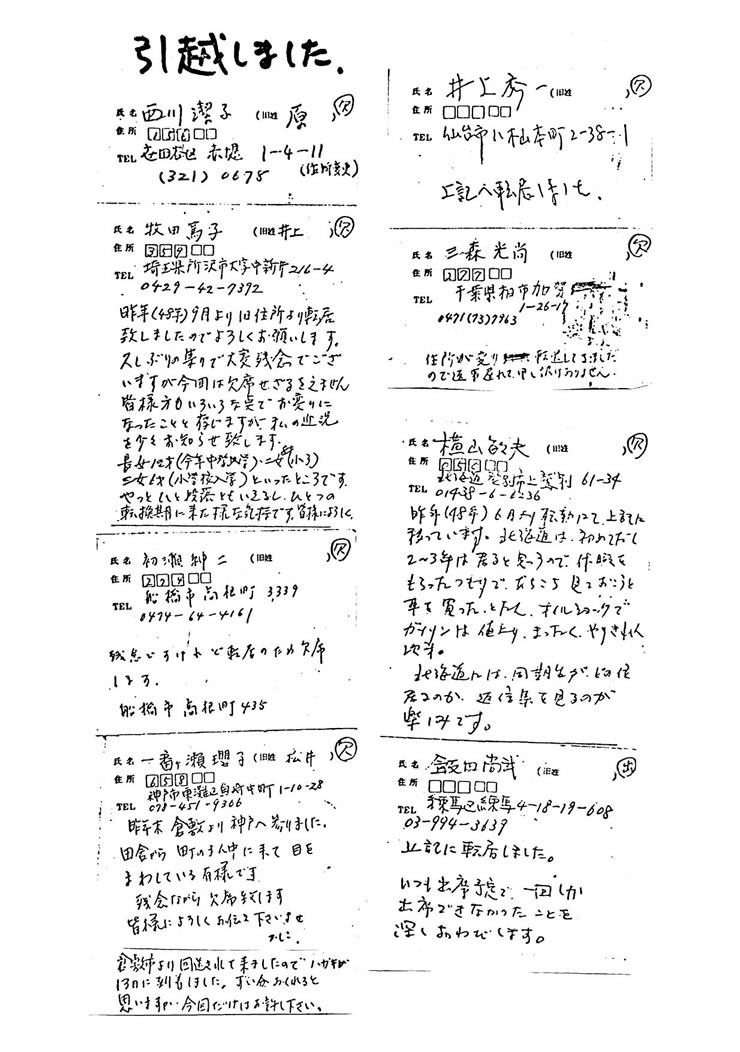 引越しました.
氏名 西川 潔子 (旧姓 原 ) 欠
住所 156
TEL 世田谷区 赤堤 1-4-11
(321) 0678 (住所変更)
氏名 牧田 篤子 (旧姓 井上 ) 欠
住所 359
TEL 埼玉県所沢市大字中新井216-4
0429-42-7392
昨年(48年)9月より旧住所より転居
致しましたのでよろしくお願いします。
久しぶりの集りで大変残念でござ
いますが今回は欠席せざるをえません
皆様方もいろいろな点でお変りに
なったことと存じますが、私の近況
を少々お知らせ致します。
長女12才(今年中学入学)・二女(小3)
二女6才(小学校入学)といったところです。
やっとひと段落ともいえるし、ひとつの
転換期に来た様な気持です。皆様によろしく
氏名 初瀬 紳二 (旧姓 ) 欠
住所 274
TEL 船橋市高根町 3339
0474-64-4161
残念ですけれど転居のため欠席
します.
船橋市高根町435
氏名 一番ヶ瀬 瓔子 (旧姓 松井 ) 欠
住所 658
神戸市東灘区魚崎中町 1-10-28
TEL 078-451-9366
昨年末 倉敷より神戸へ参りました。
田舎から 町のまん中に来て 目を
まわしている有様です
残念ながら 欠席致します
皆様によろしくお伝え下さいませ
かしこ.
倉敷市より回送されて来ましたのでハガキが
13日に到着しました。ずい分おくれると
思いますが、今回だけはお許し下さい。
氏名 井上 秀一 (旧姓 ) 欠
住所
TEL 仙台市八木山本町2-38-1
上記へ転居しました。
氏名 三森 光尚 (旧姓 ) 欠
住所 277
TEL 千葉県柏市加賀
1-26-17
0471(73)7963
住所が変り 転送してきました
ので返事遅れて申し訳ありません.
氏名 横山 敏夫 (旧姓 ) 欠
住所
北海道登別市上登別 61-34
TEL 01438-6-6236
昨年(48年)6月より転勤にて上記に
移っています。北海道は、初めてだし
2~3年は居ると思うので、休暇を
もらったつもりで、あちこち見ておこうと
車を買ったとたん、オイルショックで
ガソリンは値上り、まったく、やりきれん
次第。
北海道には、同期生が、どの位
居るのか、返信集を見るのが
楽しみです。
氏名 飯田 尚武 (旧姓 ) 出
住所
TEL 練馬区練馬4-18-19-608
03-994-3639
上記に転居しました。
いつも出席予定で、一回しか
出席できなかったことを
深くおわびします。